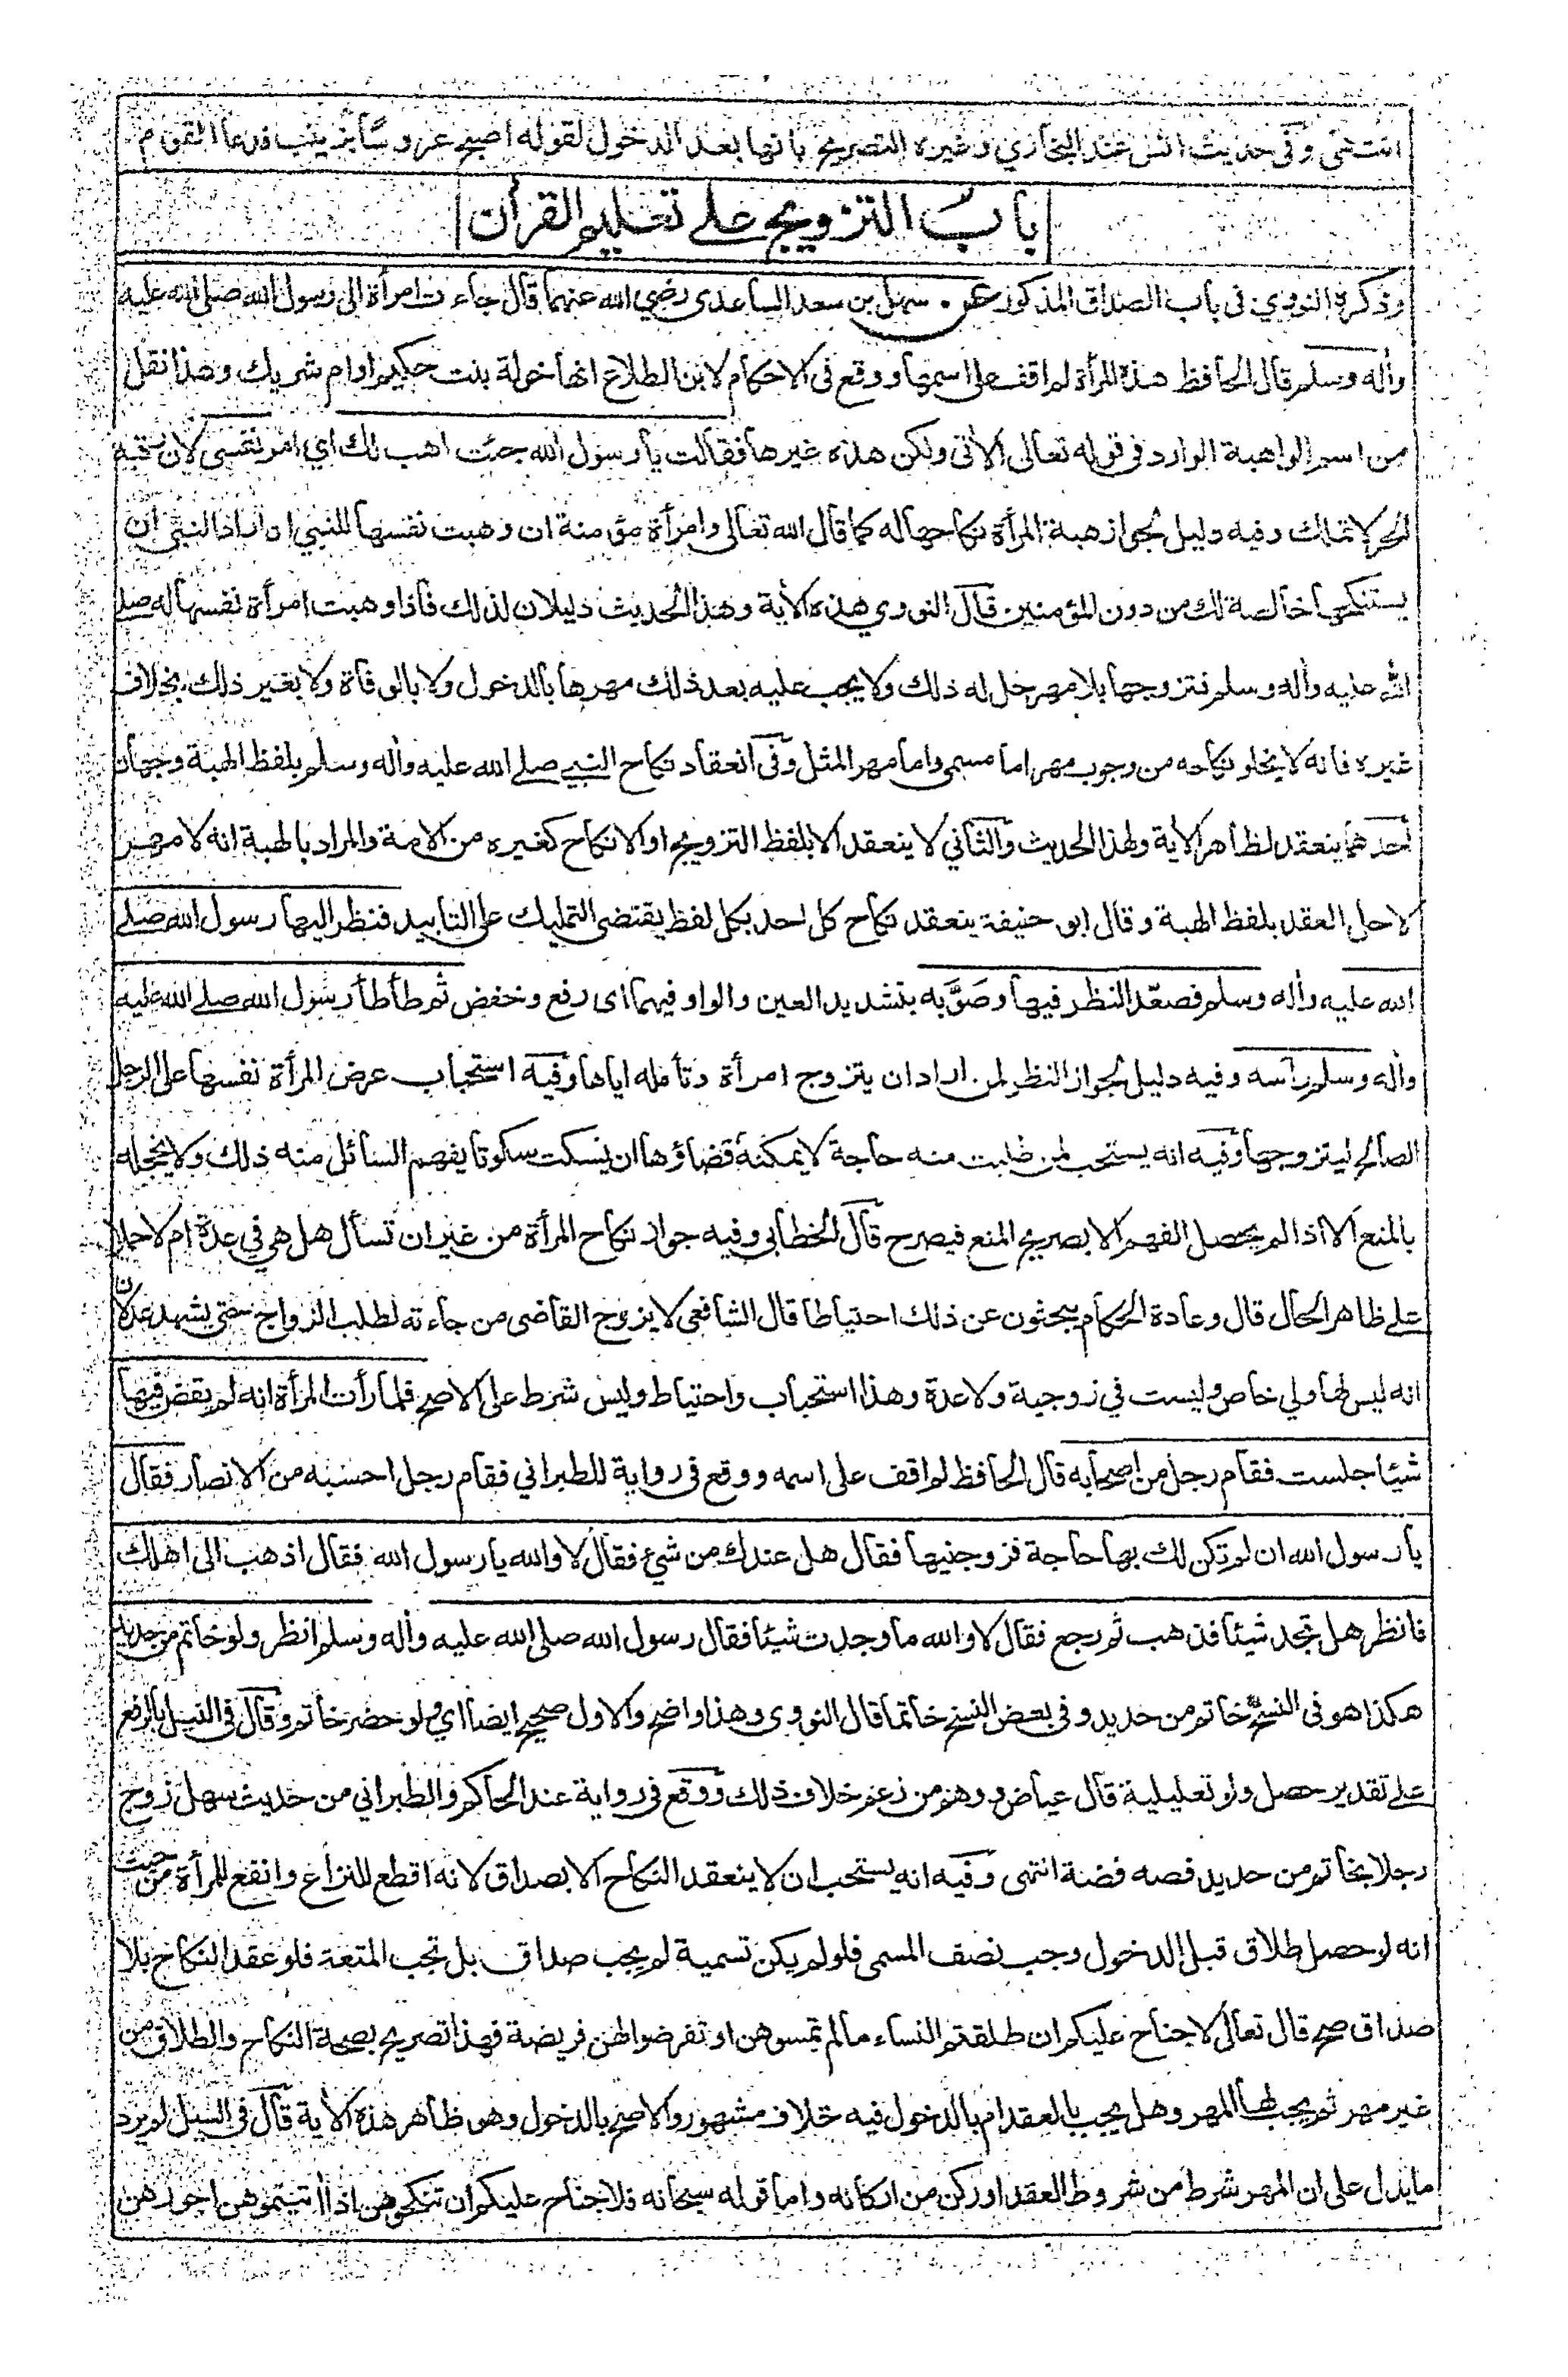 انتهى وفي حديث انس عند البخاري وغيره التصريح بانها بعد الدخول لقوله اصبح عروسًا بزينب فدعا القوم
باب التزويج على تعليم القرأن
وذكره النووي في باب الصداق المذكور عن سهل بن سعد الساعدى رضي الله عنهما قال جاءت امرأة الى رسول الله صلى الله عليه
وأله وسلم قال الحافظ هذه المرأة لم اقف على اسمها ووقع في الاحكام لابن الطلاع انها خولة بنت حكيم او ام شريك وهذا نقل
من اسم الواهبة الوارد في قوله تعالى الأتى ولكن هذه غيرها فقالت يا رسول الله جئت اهب لك اي امر نفسي لان رقبة
الحر لا تملك وفيه دليل لجواز هبة المرأة نكاحها له كما قال الله تعالى وامرأة مؤمنة ان وهبت نفسها للنبي ان اراد النبي ان
يستنكحها خالصة لك من دون المؤمنين قال النووي هذه الأية وهذا الحديث دليلان لذلك فاذا وهبت امرأة نفسها له صلى
الله عليه وأله وسلم فتزوجها بلا مهر حل له ذلك ولا يجب عليه بعد ذلك مهرها بالدخول ولا بالوفاة ولا بغير ذلك بخلاف
غيره فانه لا يخلو نكاحه من وجوب مهر اما مسمى واما مهر المثل وفي انعقاد نكاح النبي صلى الله عليه وأله وسلم بلفظ الهبة وجهان
أحدهما ينعقد لظاهر الأية ولهذا الحديث والثاني لا ينعقد الا بلفظ التزويج او الانكاح كغيره من الامة والمراد بالهبة انه لا مهر
لاجل العقد بلفظ الهبة وقال ابو حنيفة ينعقد نكاح كل احد بكل لفظ يقتضى التمليك على التابيد فنظر اليها رسول الله صلى
الله عليه وأله وسلم فصعّد النظر فيها وصَوَّبه بتشديد العين والواو فيهما اى رفع وخفض ثم طأطأ رسول الله صلى الله عليه
وأله وسلم رأسه وفيه دليل لجواز النظر لمن اراد ان يتزوج امرأة وتأمله اياها وفيه استحباب عرض المرأة نفسها على الرجل
الصالح ليتزوجها وفيه انه يستحب لمن طلبت منه حاجة لا يمكنه قضاؤها ان يسكت سكوتا يفهم السائل منه ذلك ولا يخجله
بالمنع الا اذا لم يحصل الفهم الا بصريح المنع فيصرح قال الخطابي وفيه جواز نكاح المرأة من غير ان تسأل هل هي في عدة ام لا حملا
على ظاهر الحال قال وعادة الحكام يبحثون عن ذلك احتياطا قال الشافعي لا يزوج القاضى من جاءته لطلب الزواج حتى يشهد عدلان
انه ليس لها ولي خاص وليست في زوجية ولا عدة وهذا استحباب واحتياط وليس شرط على الاصح فلما رأت المرأة انه لم يقض فيها
شيئا جلست فقام رجل من اصحابه قال الحافظ لم اقف على اسمه ووقع في رواية للطبراني فقام رجل احسبه من الانصار فقال
يا رسول الله ان لم تكن لك بها حاجة فزوجنيها فقال هل عندك من شيء فقال لا والله يا رسول الله فقال اذهب الى اهلك
فانظر هل تجد شيئا فذهب ثم رجع فقال لا والله ما وجدت شيئا فقال رسول الله صلى الله عليه وأله وسلم انظر ولو خاتم من حديد
هكذا هو في النسخ خاتم من حديد وفي بعض النسخ خاتما قال النووى وهذا واضح والاول صحيح ايضا اي ولو حضر خاتم وقال في النيل بالرفع
على تقدير حصل ولو تعليلية قال عياض ووهم من زعم خلاف ذلك ووقع في رواية عند الحاكم والطبراني من حديث سهل زوج
رجلا بخاتم من حديد فصه فضة انتهى وفيه انه يستحب ان لا ينعقد النكاح الا بصداق لانه اقطع للنزاع وانفع للمرأة من حيث
انه لو حصل طلاق قبل الدخول وجب نصف المسمى فلو لم يكن تسمية لم يجب صداق بل تجب المتعة فلو عقد النكاح بلا
صداق صح قال تعالى لا جناح عليكم ان طلقتم النساء ما لم تمسوهن او تفرضوا لهن فريضة فهذا تصريح بصحة النكاح والطلاق من
غير مهر ثم يجب لها المهر وهل يجب بالعقد ام بالدخول فيه خلاف مشهور والاصح بالدخول وهو ظاهر هذه الأية قال في السيل لم يرد
ما يدل على ان المهر شرط من شروط العقد او ركن من اركانه واما قوله سبحانه فلا جناح عليكم ان تنكحوهن اذا أتيتموهن اجورهن